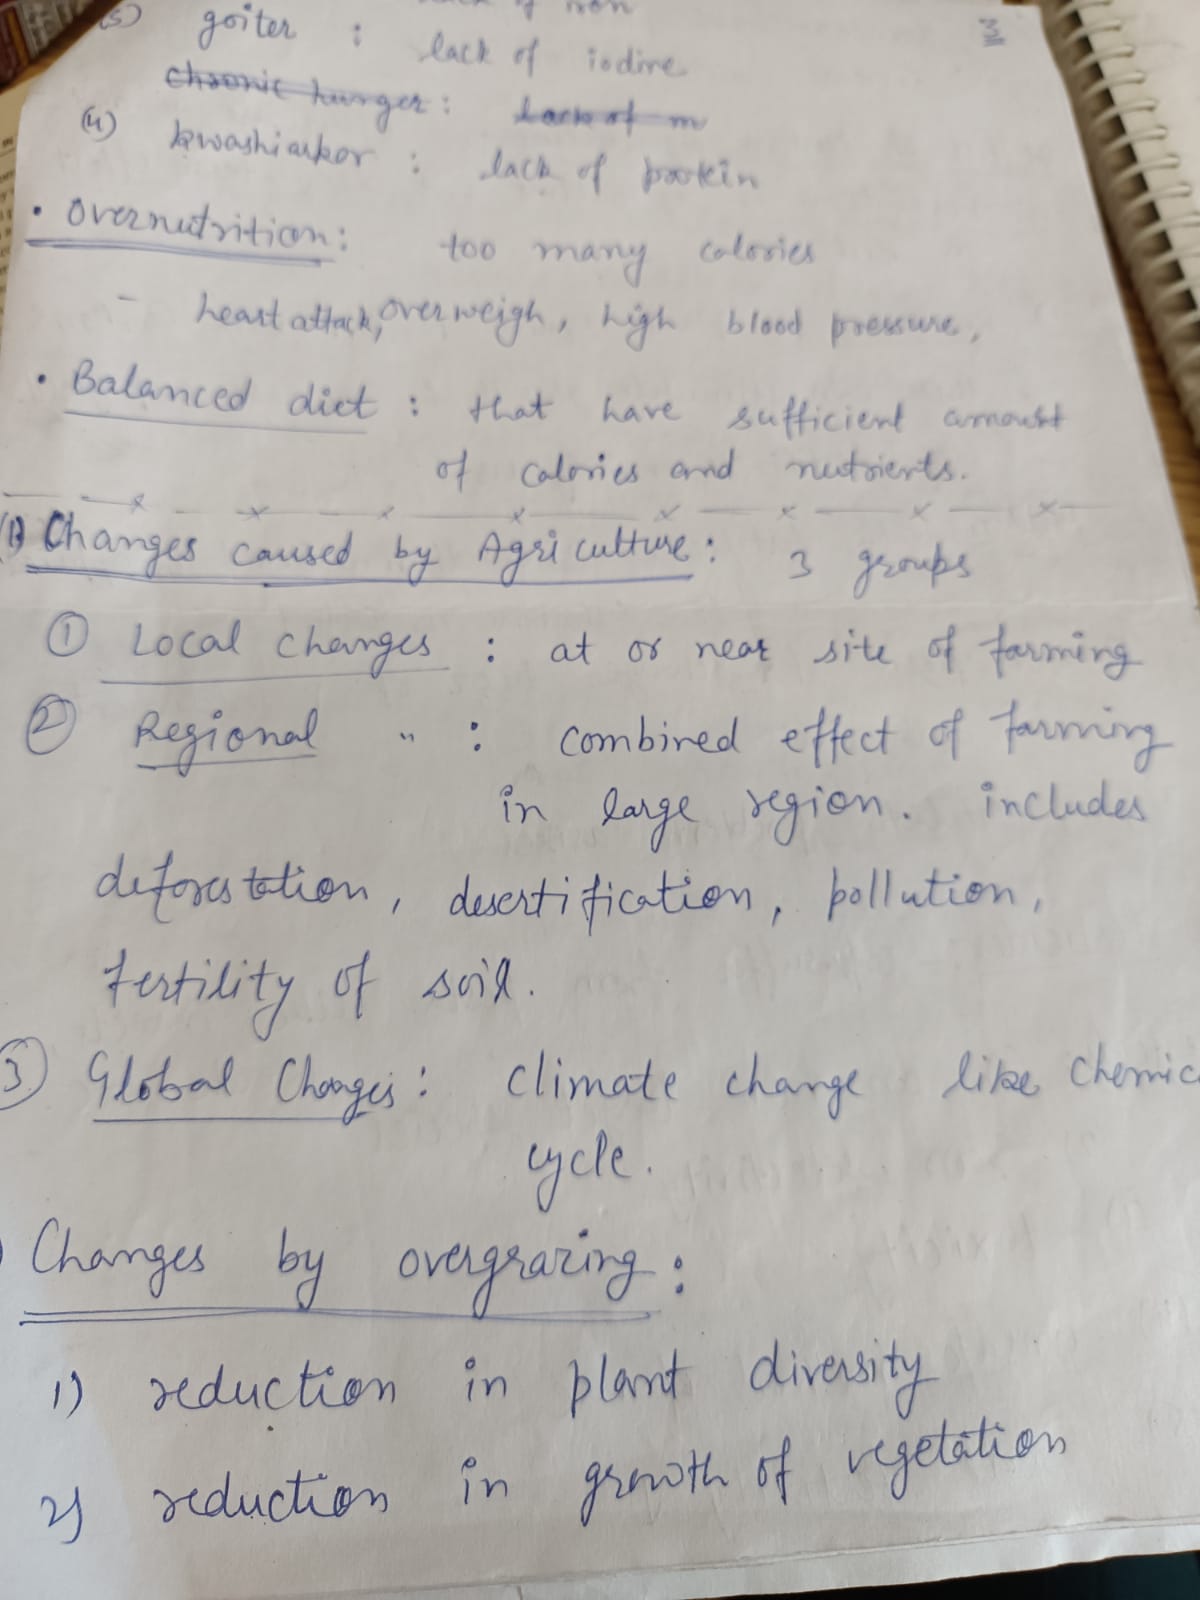 lack of iron
3
(5) goiter : lack of iodine
chronic hunger : lack of m
(4) kwashiarkor : lack of protein
• Overnutrition : too many calories
- heart attack, overweigh, high blood pressure,
• Balanced diet : that have sufficient amount
of calories and nutrients.
Changes caused by Agriculture : 3 groups
① Local changes : at or near site of farming
② Regional " : combined effect of farming
in large region. includes
deforestation, desertification, pollution,
fertility of soil.
③ Global Changes : climate change like chemic
cycle.
Changes by overgrazing :
1) reduction in plant diversity
2) reduction in growth of vegetation